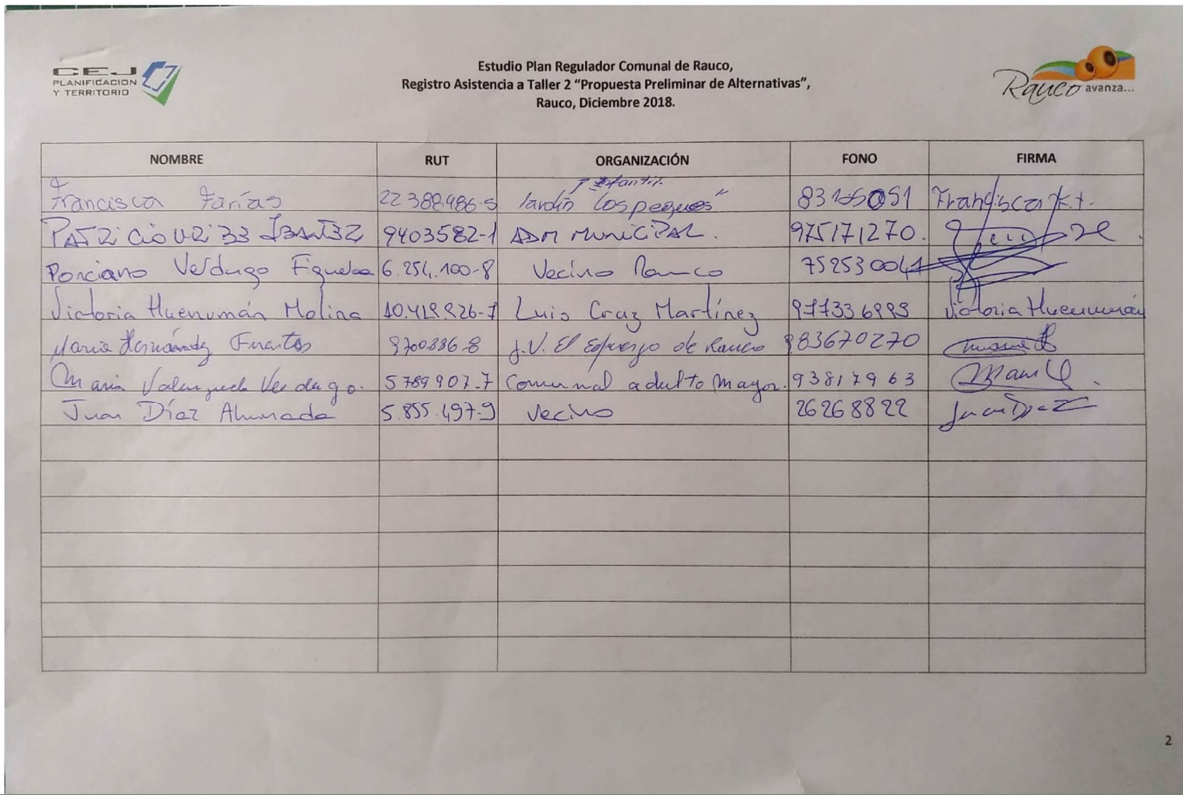 CEJ
PLANIFICACION
Y TERRITORIO
Estudio Plan Regulador Comunal de Rauco,
Registro Asistencia a Taller 2 “Propuesta Preliminar de Alternativas”,
Rauco, Diciembre 2018.
Rauco avanza...
NOMBRE RUT ORGANIZACIÓN FONO FIRMA
Francisca Farías 22.388.986-5 Jardín Infantil "Los peques" Francisca
PATRICIO 9403582-1 ADM MUNICIPAL. 975171270.
Ponciano Verdugo 6.254.100-8 Vecino Rauco 752530041
Victoria Huenumán Molina Luis Cruz Martínez Victoria Huenumán
María Hernández Fuentes J.V. El Esfuerzo de Rauco 983670270
Maria Valenzuela Verdugo. 5789907.7 Comunal adulto Mayor. 93817963
Juan Díaz Ahumada 5.855.497-9 Vecino 26268822 Juan Diaz
2